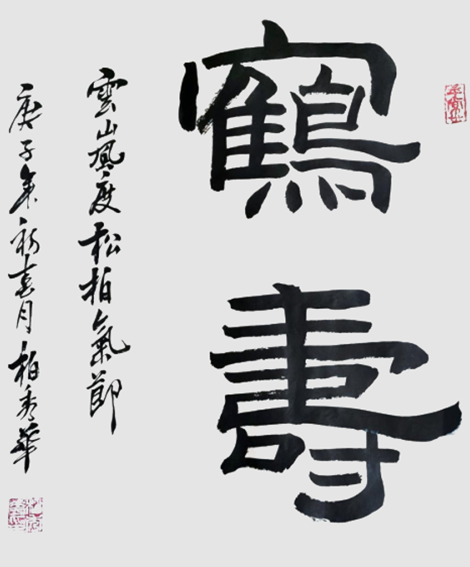 鶴壽
雲山風度松柏氣節
庚子年初春月柏秀華